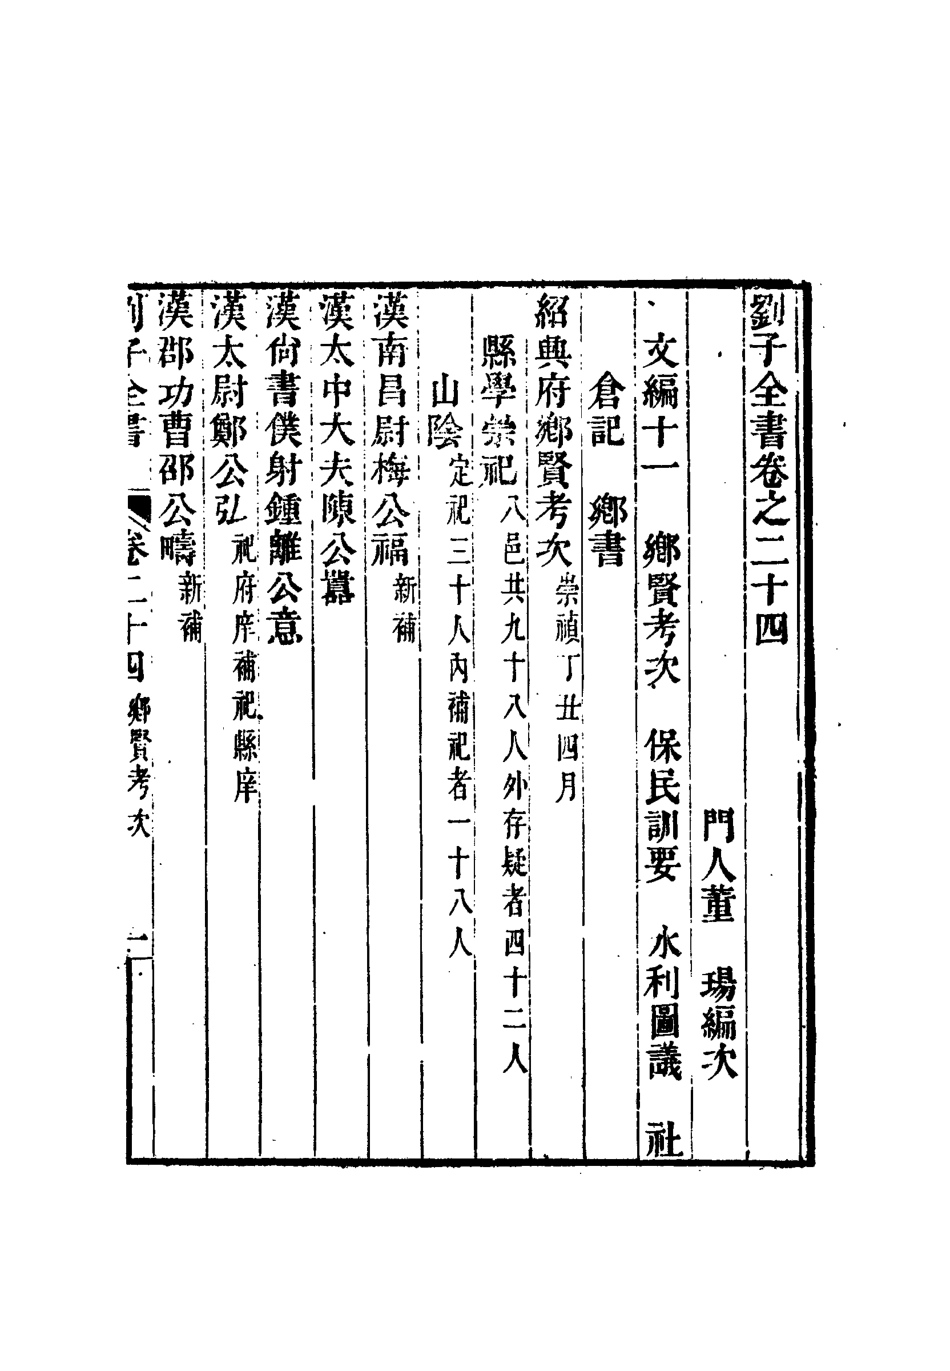 劉子全書卷之二十四
門人董　瑒編次
文編十一　鄉賢考次　保民訓要　水利圖議　社
倉記　鄉書
紹興府鄉賢考次崇禎丁丑四月
縣學崇祀八邑共九十八人外存疑者四十二人
山陰定祀三十人內補祀者一十八人
漢南昌尉梅公福新補
漢太中大夫陳公囂
漢尙書僕射鍾離公意
漢太尉鄭公弘祀府庠補祀縣庠
漢郡功曹邵公疇新補
劉子全書　卷二十四鄉賢考次　一